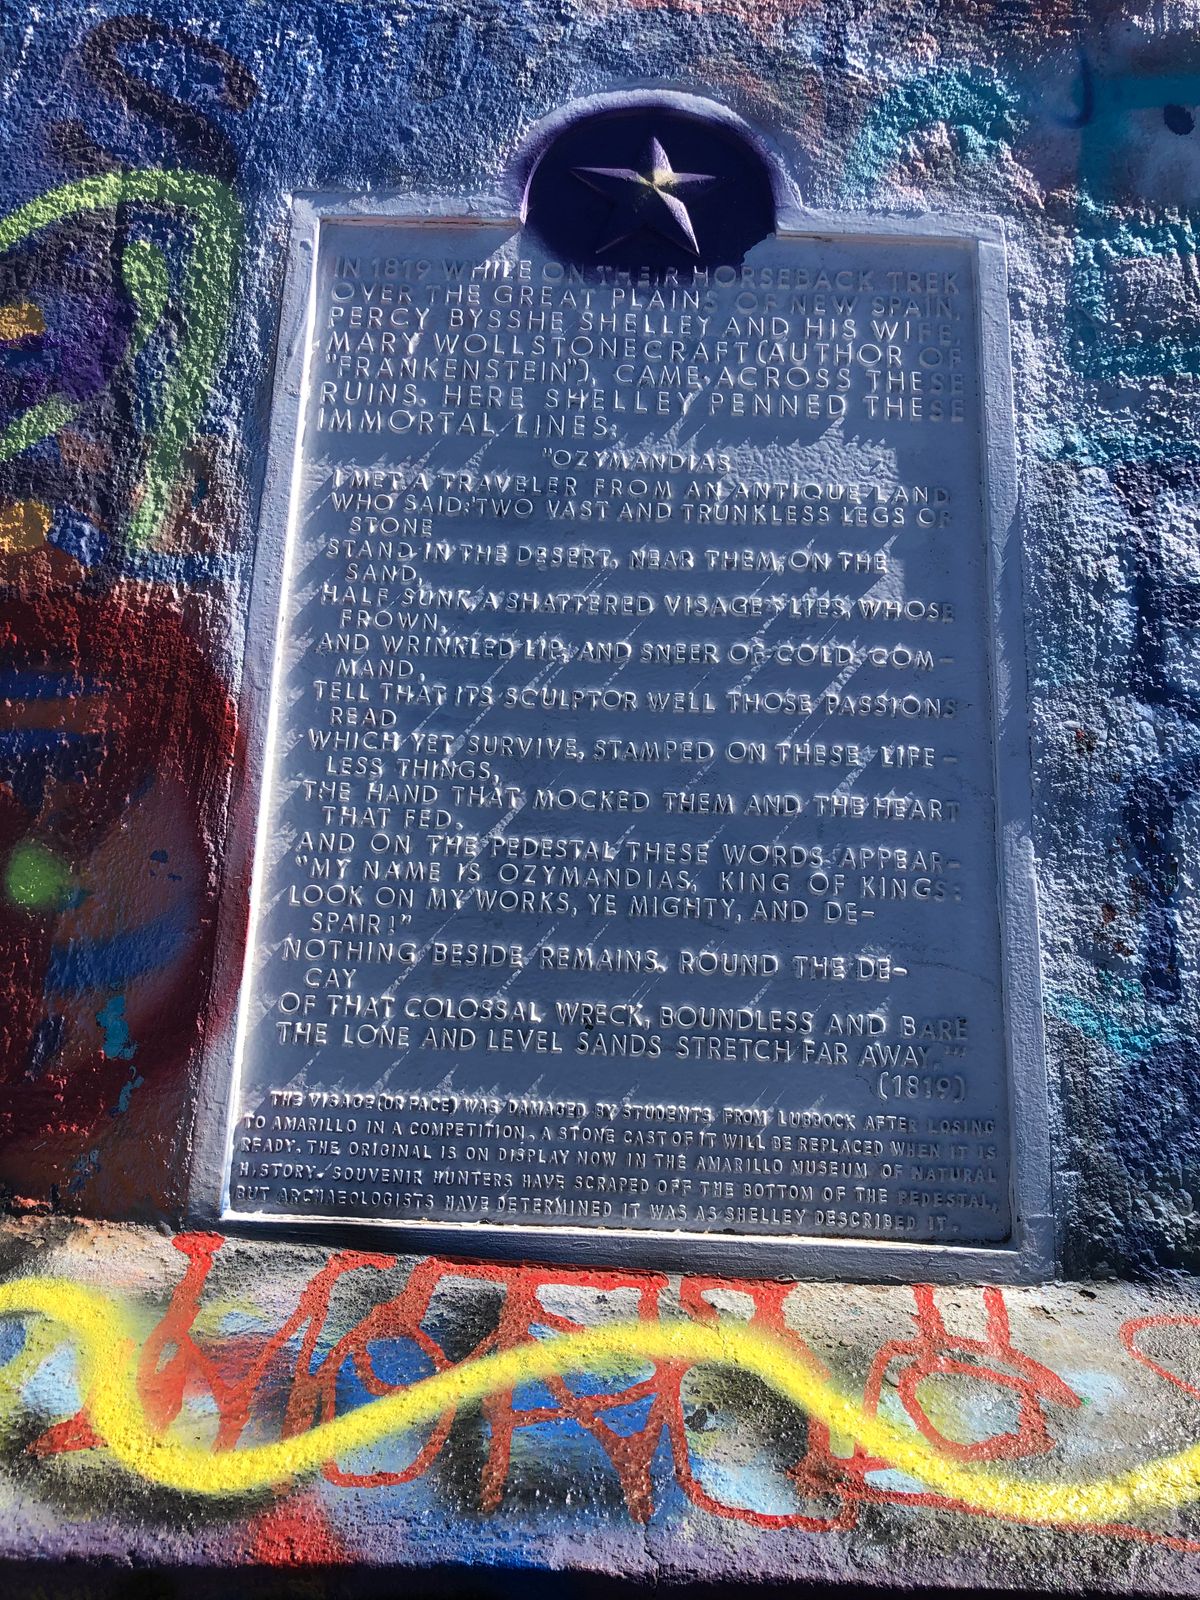 IN 1819 WHILE ON THEIR HORSEBACK TREK
OVER THE GREAT PLAINS OF NEW SPAIN,
PERCY BYSSHE SHELLEY AND HIS WIFE,
MARY WOLLSTONECRAFT (AUTHOR OF
"FRANKENSTEIN"), CAME ACROSS THESE
RUINS. HERE SHELLEY PENNED THESE
IMMORTAL LINES:
"OZYMANDIAS
I MET A TRAVELER FROM AN ANTIQUE LAND
WHO SAID: TWO VAST AND TRUNKLESS LEGS OF
STONE
STAND IN THE DESERT, NEAR THEM, ON THE
SAND,
HALF SUNK, A SHATTERED VISAGE LIES, WHOSE
FROWN,
AND WRINKLED LIP, AND SNEER OF COLD COM-
MAND,
TELL THAT ITS SCULPTOR WELL THOSE PASSIONS
READ
WHICH YET SURVIVE, STAMPED ON THESE LIFE-
LESS THINGS,
THE HAND THAT MOCKED THEM AND THE HEART
THAT FED.
AND ON THE PEDESTAL THESE WORDS APPEAR-
"MY NAME IS OZYMANDIAS, KING OF KINGS:
LOOK ON MY WORKS, YE MIGHTY, AND DE-
SPAIR!"
NOTHING BESIDE REMAINS. ROUND THE DE-
CAY
OF THAT COLOSSAL WRECK, BOUNDLESS AND BARE
THE LONE AND LEVEL SANDS STRETCH FAR AWAY."
(1819)
THE VISAGE (OR FACE) WAS DAMAGED BY STUDENTS FROM LUBBOCK AFTER LOSING
TO AMARILLO IN A COMPETITION. A STONE CAST OF IT WILL BE REPLACED WHEN IT IS
READY. THE ORIGINAL IS ON DISPLAY NOW IN THE AMARILLO MUSEUM OF NATURAL
HISTORY. SOUVENIR HUNTERS HAVE SCRAPED OFF THE BOTTOM OF THE PEDESTAL,
BUT ARCHAEOLOGISTS HAVE DETERMINED IT WAS AS SHELLEY DESCRIBED IT.